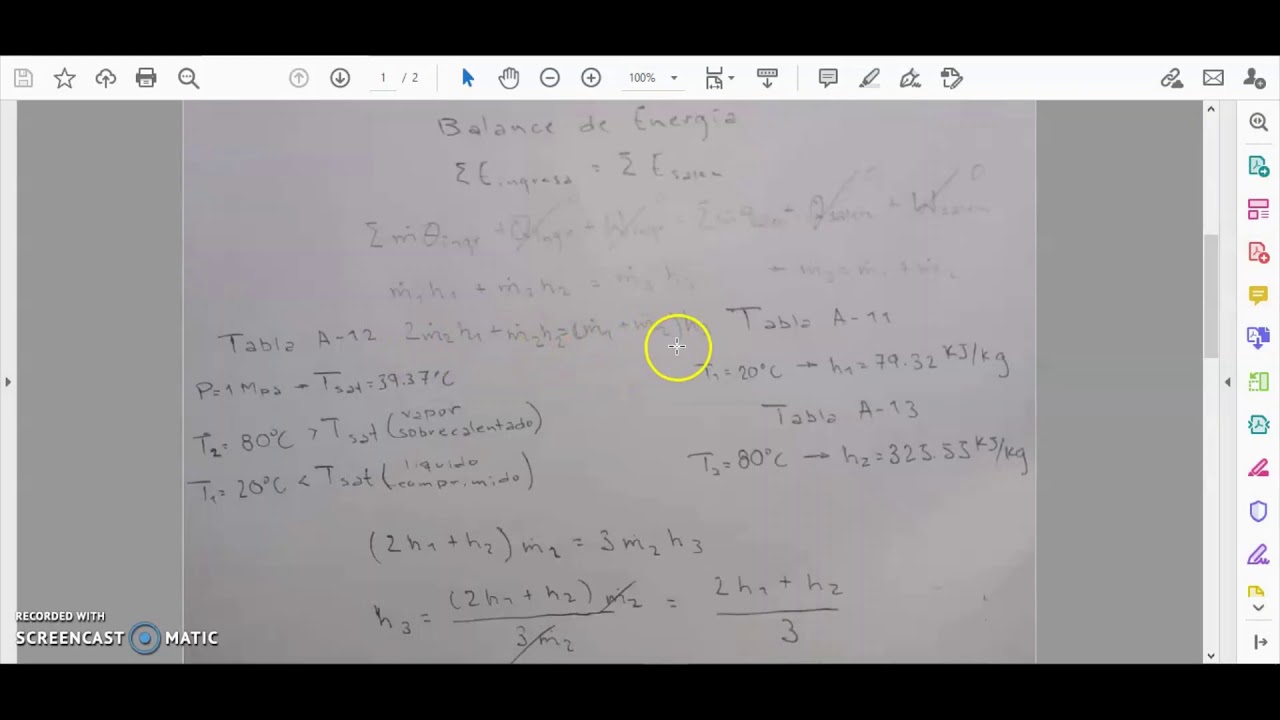 1 / 2
100%
Balance de Energía
Σ E ingresa = Σ E salen
Σ ṁ θ ingr
ṁ1 h1 + ṁ2 h2 = ṁ3 h3
Tabla A-12 2ṁ2 h1 + ṁ2 h2 = (ṁ1 + ṁ2) h
Tabla A-11
P=1 Mpa → Tsat = 39.37°C
T1 = 20°C → h1 = 79.32 KJ/kg
T2 = 80°C > Tsat (vapor sobrecalentado)
Tabla A-13
T1 = 20°C < Tsat (liquido comprimido)
T2 = 80°C → h2 = 325.53 KJ/kg
(2h1 + h2) ṁ2 = 3ṁ2 h3
h3 = (2h1 + h2) ṁ2 / 3ṁ2 = 2h1 + h2 / 3
RECORDED WITH
SCREENCAST MATIC